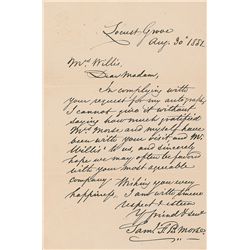 Locust Grove
Aug. 30th 1851.
Mrs. Willis,
Dear Madam,
In complying with
your request for my autograph,
I cannot give it without
saying how much gratified
Mrs. Morse and myself have
been with your visit, and Mr.
Willis' to us, and sincerely
hope we may often be favored
with your most agreeable
company. Wishing you every
happiness, I am with sincere
respect & esteem
Yr friend & servt
Saml. F. B. Morse.